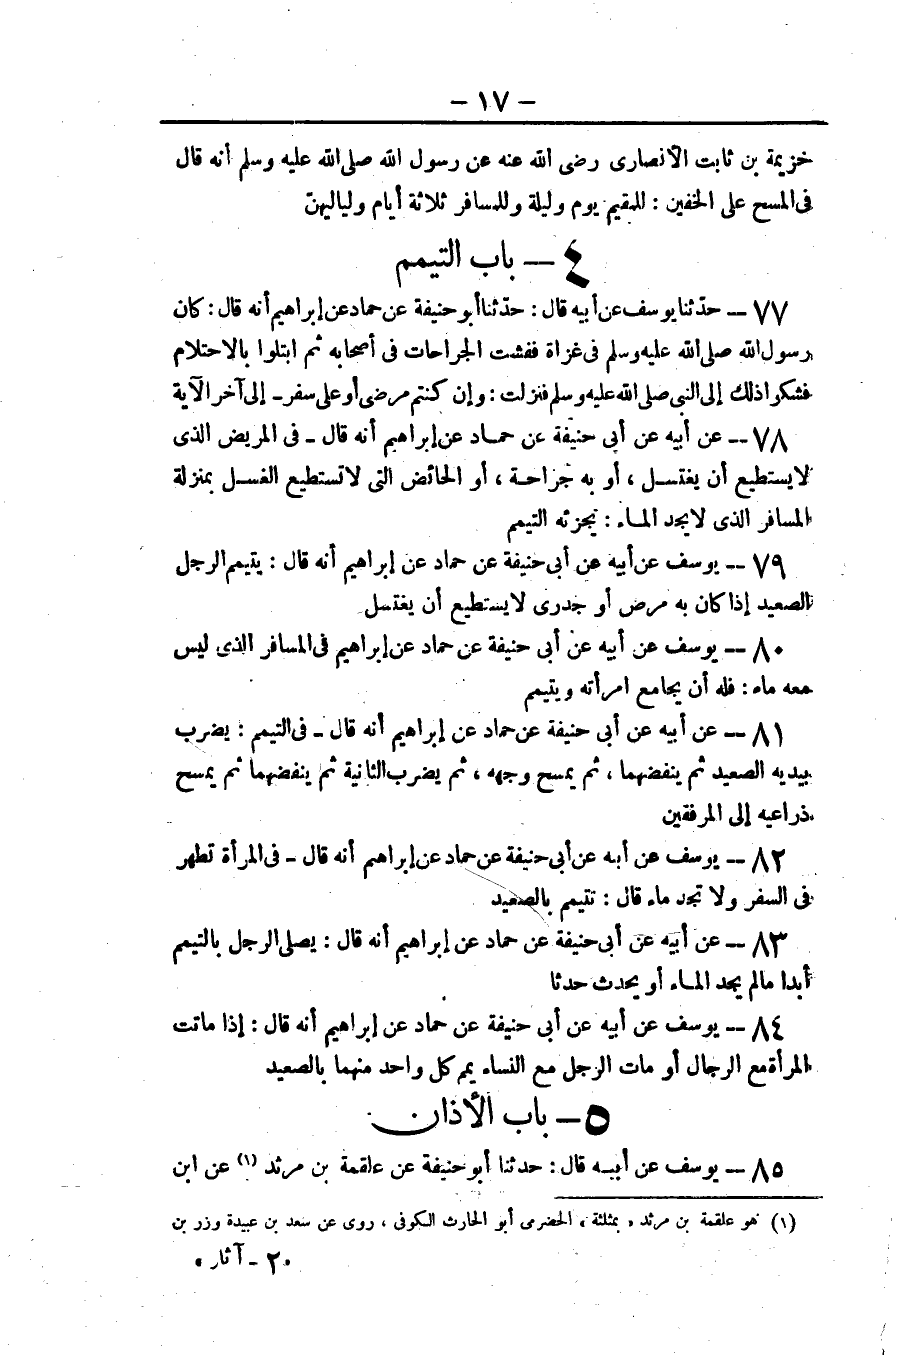 - ١٧ -
خزيمة بن ثابت الأنصارى رضى الله عنه عن رسول الله صلى الله عليه وسلم أنه قال
فى المسح على الخفين : للمقيم يوم وليلة وللمسافر ثلاثة أيام ولياليهنّ
٤ — باب التيمم
٧٧ — حدّثنا يوسف عن أبيه قال : حدّثنا أبو حنيفة عن حماد عن إبراهيم أنه قال : كان
رسول الله صلى الله عليه وسلم فى غزاة ففشت الجراحات فى أصحابه ثم ابتلوا بالاحتلام
فشكوا ذلك إلى النبى صلى الله عليه وسلم فنزلت : وإن كنتم مرضى أو على سفر - إلى آخر الآية
٧٨ — عن أبيه عن أبى حنيفة عن حماد عن إبراهيم أنه قال - فى المريض الذى
لا يستطيع أن يغتسل ، أو به جراحة ، أو الحائض التى لا تستطيع الغسل بمنزلة
المسافر الذى لا يجد الماء : يجزئه التيمم
٧٩ — يوسف عن أبيه عن أبى حنيفة عن حماد عن إبراهيم أنه قال : يتيمم الرجل
الصعيد إذا كان به مرض أو جدرى لا يستطيع أن يغتسل
٨٠ — يوسف عن أبيه عن أبى حنيفة عن حماد عن إبراهيم فى المسافر الذى ليس
معه ماء : فله أن يجامع امرأته ويتيمم
٨١ — عن أبيه عن أبى حنيفة عن حماد عن إبراهيم أنه قال - فى التيمم : يضرب
بيديه الصعيد ثم ينفضهما ، ثم يمسح وجهه ، ثم يضرب الثانية ثم ينفضهما ثم يمسح
ذراعيه إلى المرفقين
٨٢ — يوسف عن أبيه عن أبى حنيفة عن حماد عن إبراهيم أنه قال - فى المرأة تطهر
فى السفر ولا تجد ماء قال : تتيمم بالصعيد
٨٣ — عن أبيه عن أبى حنيفة عن حماد عن إبراهيم أنه قال : يصلى الرجل بالتيمم
أبدا مالم يجد الماء أو يحدث حدثا
٨٤ — يوسف عن أبيه عن أبى حنيفة عن حماد عن إبراهيم أنه قال : إذا ماتت
المرأة مع الرجال أو مات الرجل مع النساء يمم كل واحد منهما بالصعيد
٥ — باب الأذان
٨٥ — يوسف عن أبيه قال : حدثنا أبو حنيفة عن علقمة بن مرثد (١) عن ابن
(١) هو علقمة بن مرثد « بمثلثة » الحضرمى أبو الحارث الكوفى ، روى عن سعد بن عبيدة وزر بن
« ٢ - آثار »